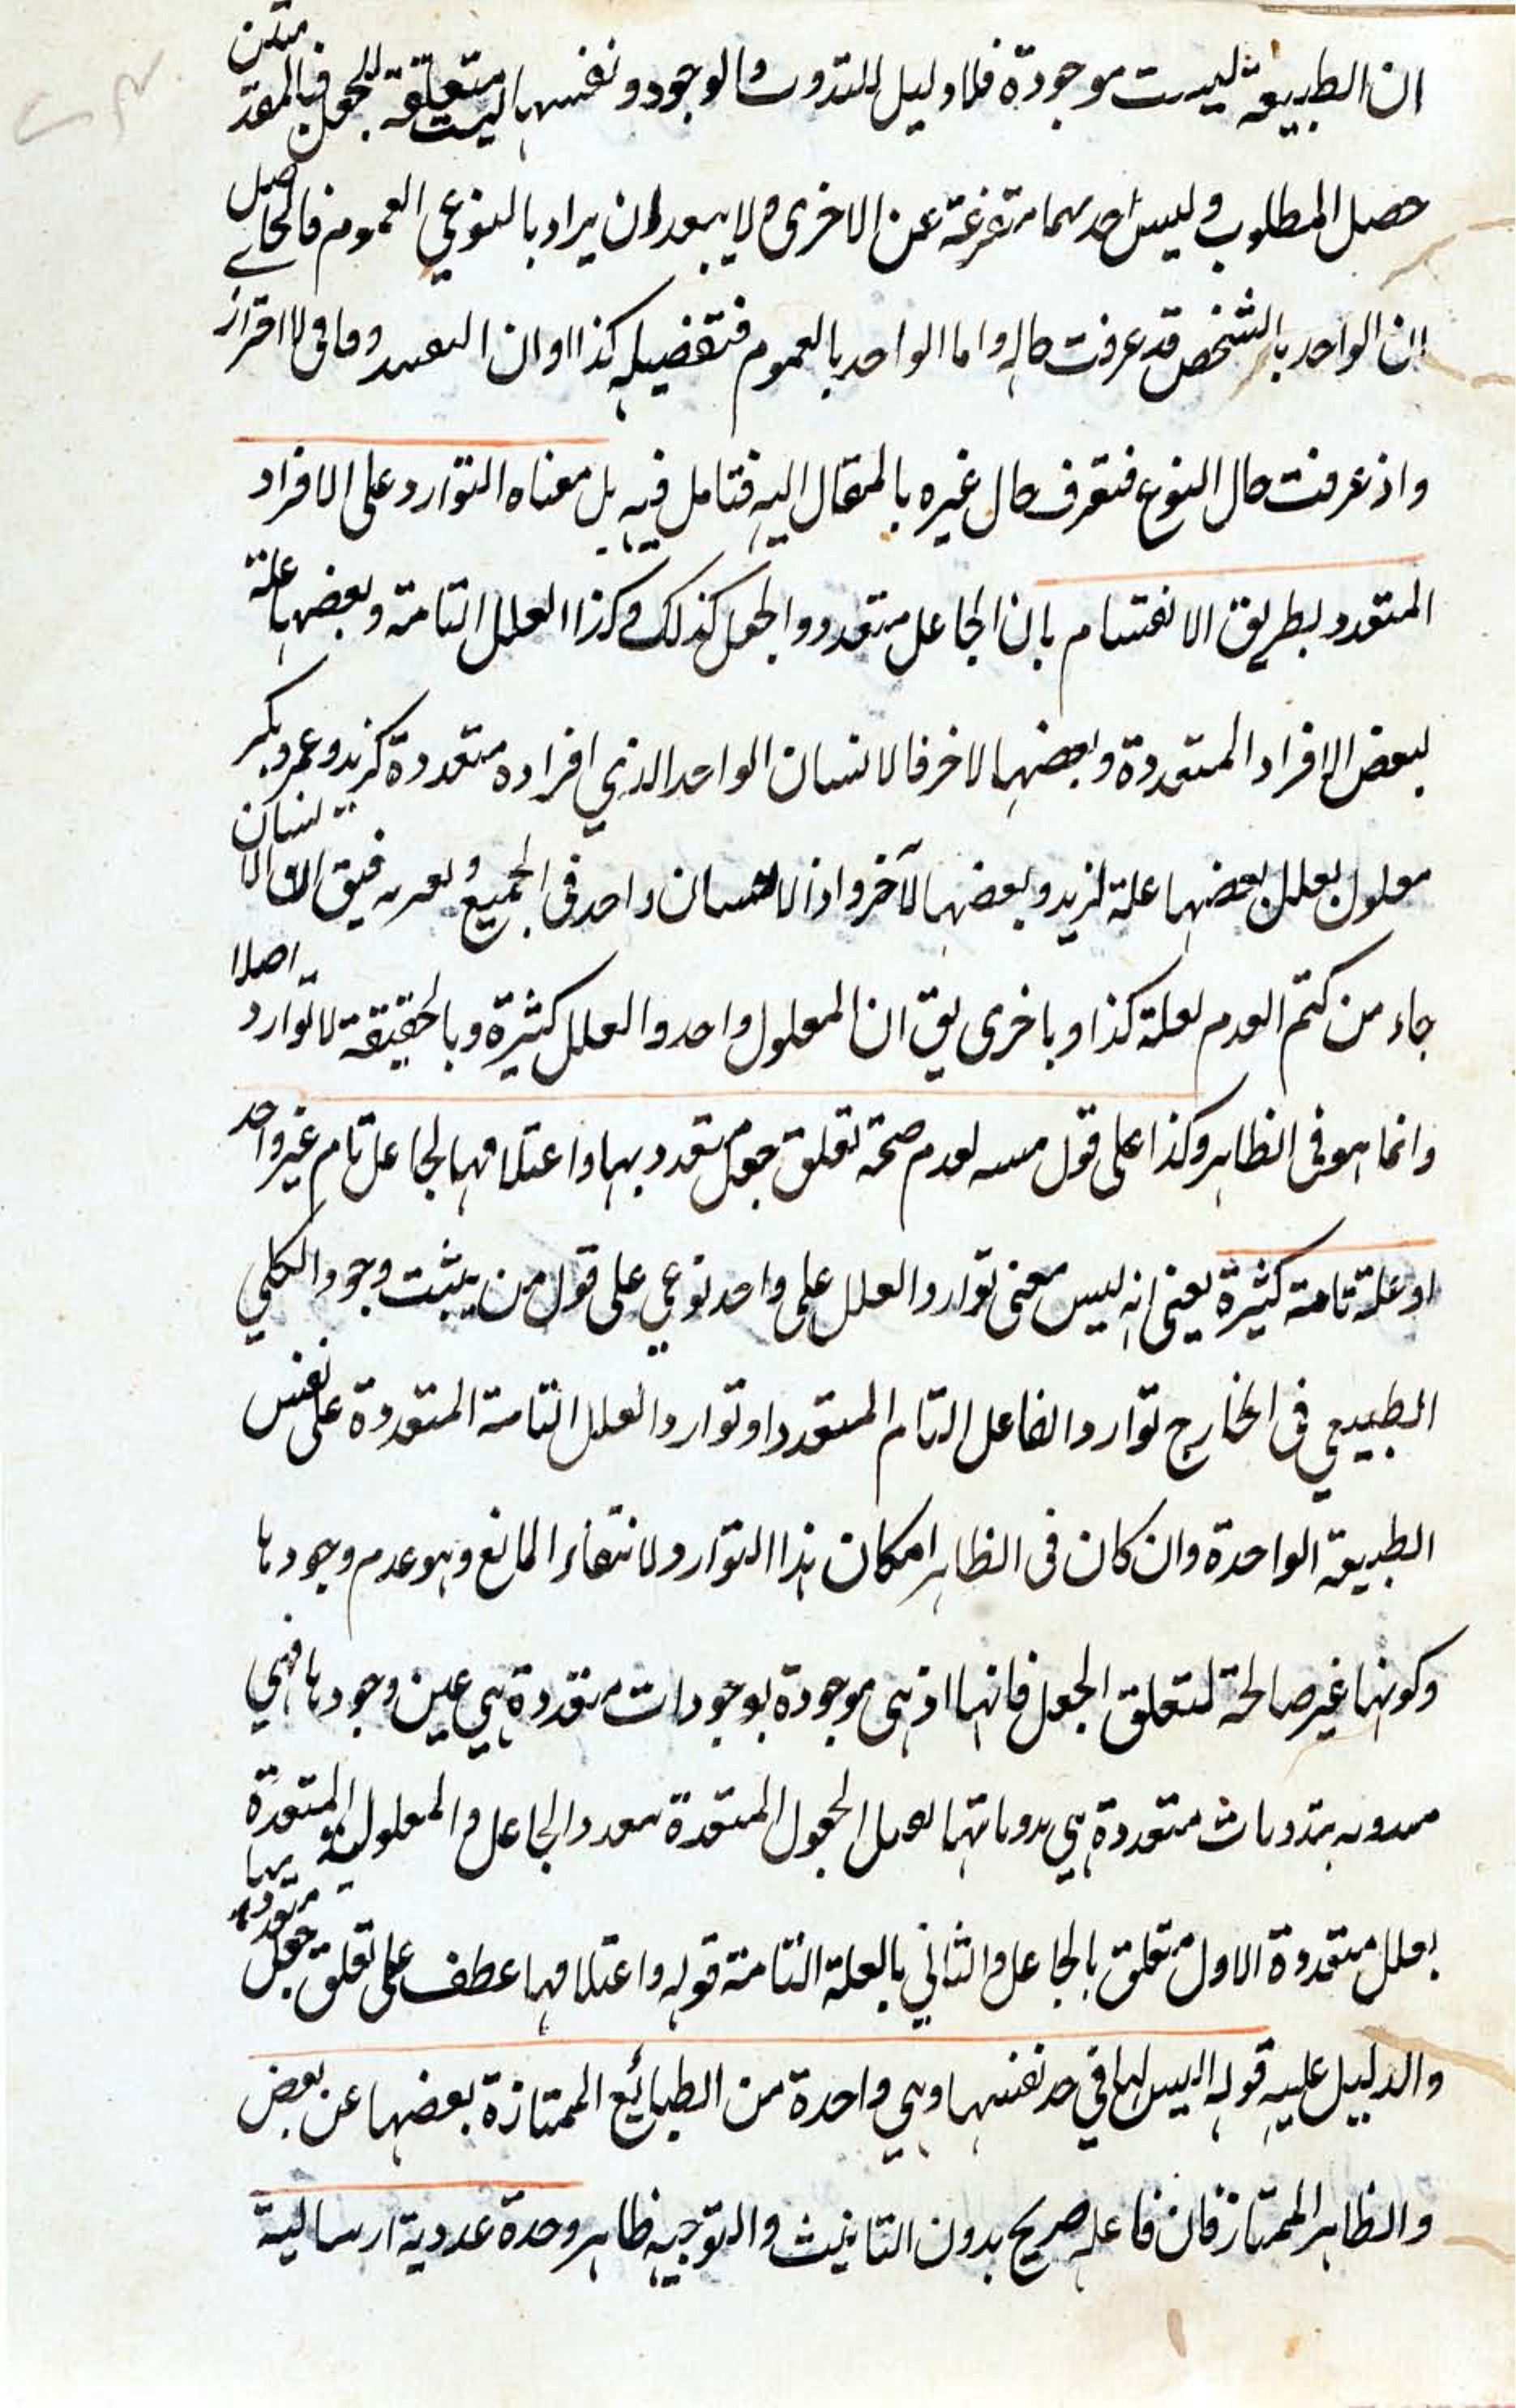 ان الطبيعة ليست موجودة فلا وليل للتدوت والوجود ونفسها ليست متعلقة الجعل فبالمقدمتين
حصل المطلوب وليس احدهما متفرعة عن الاخرى ولا يبعد ان يراد بالنوعي العموم فالحاصل
ان الواحد بالشخص قد عرفت حاله واما الواحد بالعموم فتفضيله كذا وان
واذ عرفت حال النوع فتعرف حال غيره بالمقال اليه فتامل فيه بل معناه التوارد على الافراد
المتعدد بطريق الانقسام بان الجاعل متعدد والجعل كذلك وكذا العلل التامة وبعضها علة
لبعض الافراد المتعددة وبعضها لاخر فالانسان الواحد الذي افراده متعددة كزيد وعمرو بكر
معلول بعلل بعضها علة لزيد وبعضها لآخر واذ الانسان واحد في الجميع و الانسان
جاء من كتم العدم لعلة كذا وباخرى يق ان المعلول واحد والعلل كثيرة وبالحقيقة لا توارد اصلا
وانما هو فى الظاهر وكذا على قول لعدم صحة تعلق جعل متعدد بها واعتلافها لجاعل تام غير واحد
او علة تامة كثيرة يعنى انه ليس معنى توارد العلل على واحد نوعي على قول من يثبت وجود الكلي
الطبيعي فى الخارج توارد الفاعل التام المتعدد او توارد العلل التامة المتعددة على نفس
الطبيعة الواحدة وان كان فى الظاهر امكان هذا التوارد لانتفاء المانع وهو عدم وجودها
وكونها غير صالحة لتعلق الجعل فانها اذ هى موجودة بوجودات متعددة هي عين وجودها فهي
بتدوتات متعددة هي الجعول المتعددة الجاعل والمعلولية المتعددة بها
بعلل متعددة الاول متعلق بالجاعل والثاني بالعلة التامة قوله واعتلافها عطف على تعلق جعل متعدد
والدليل عليه قوله اليس لها في حد نفسها وهي واحدة من الطبائع الممتازة بعضها عن بعض
والظاهر الممتاز فان فاعله صريح بدون التانيث والتوجيه ظاهر وحدة عددية ارسالية